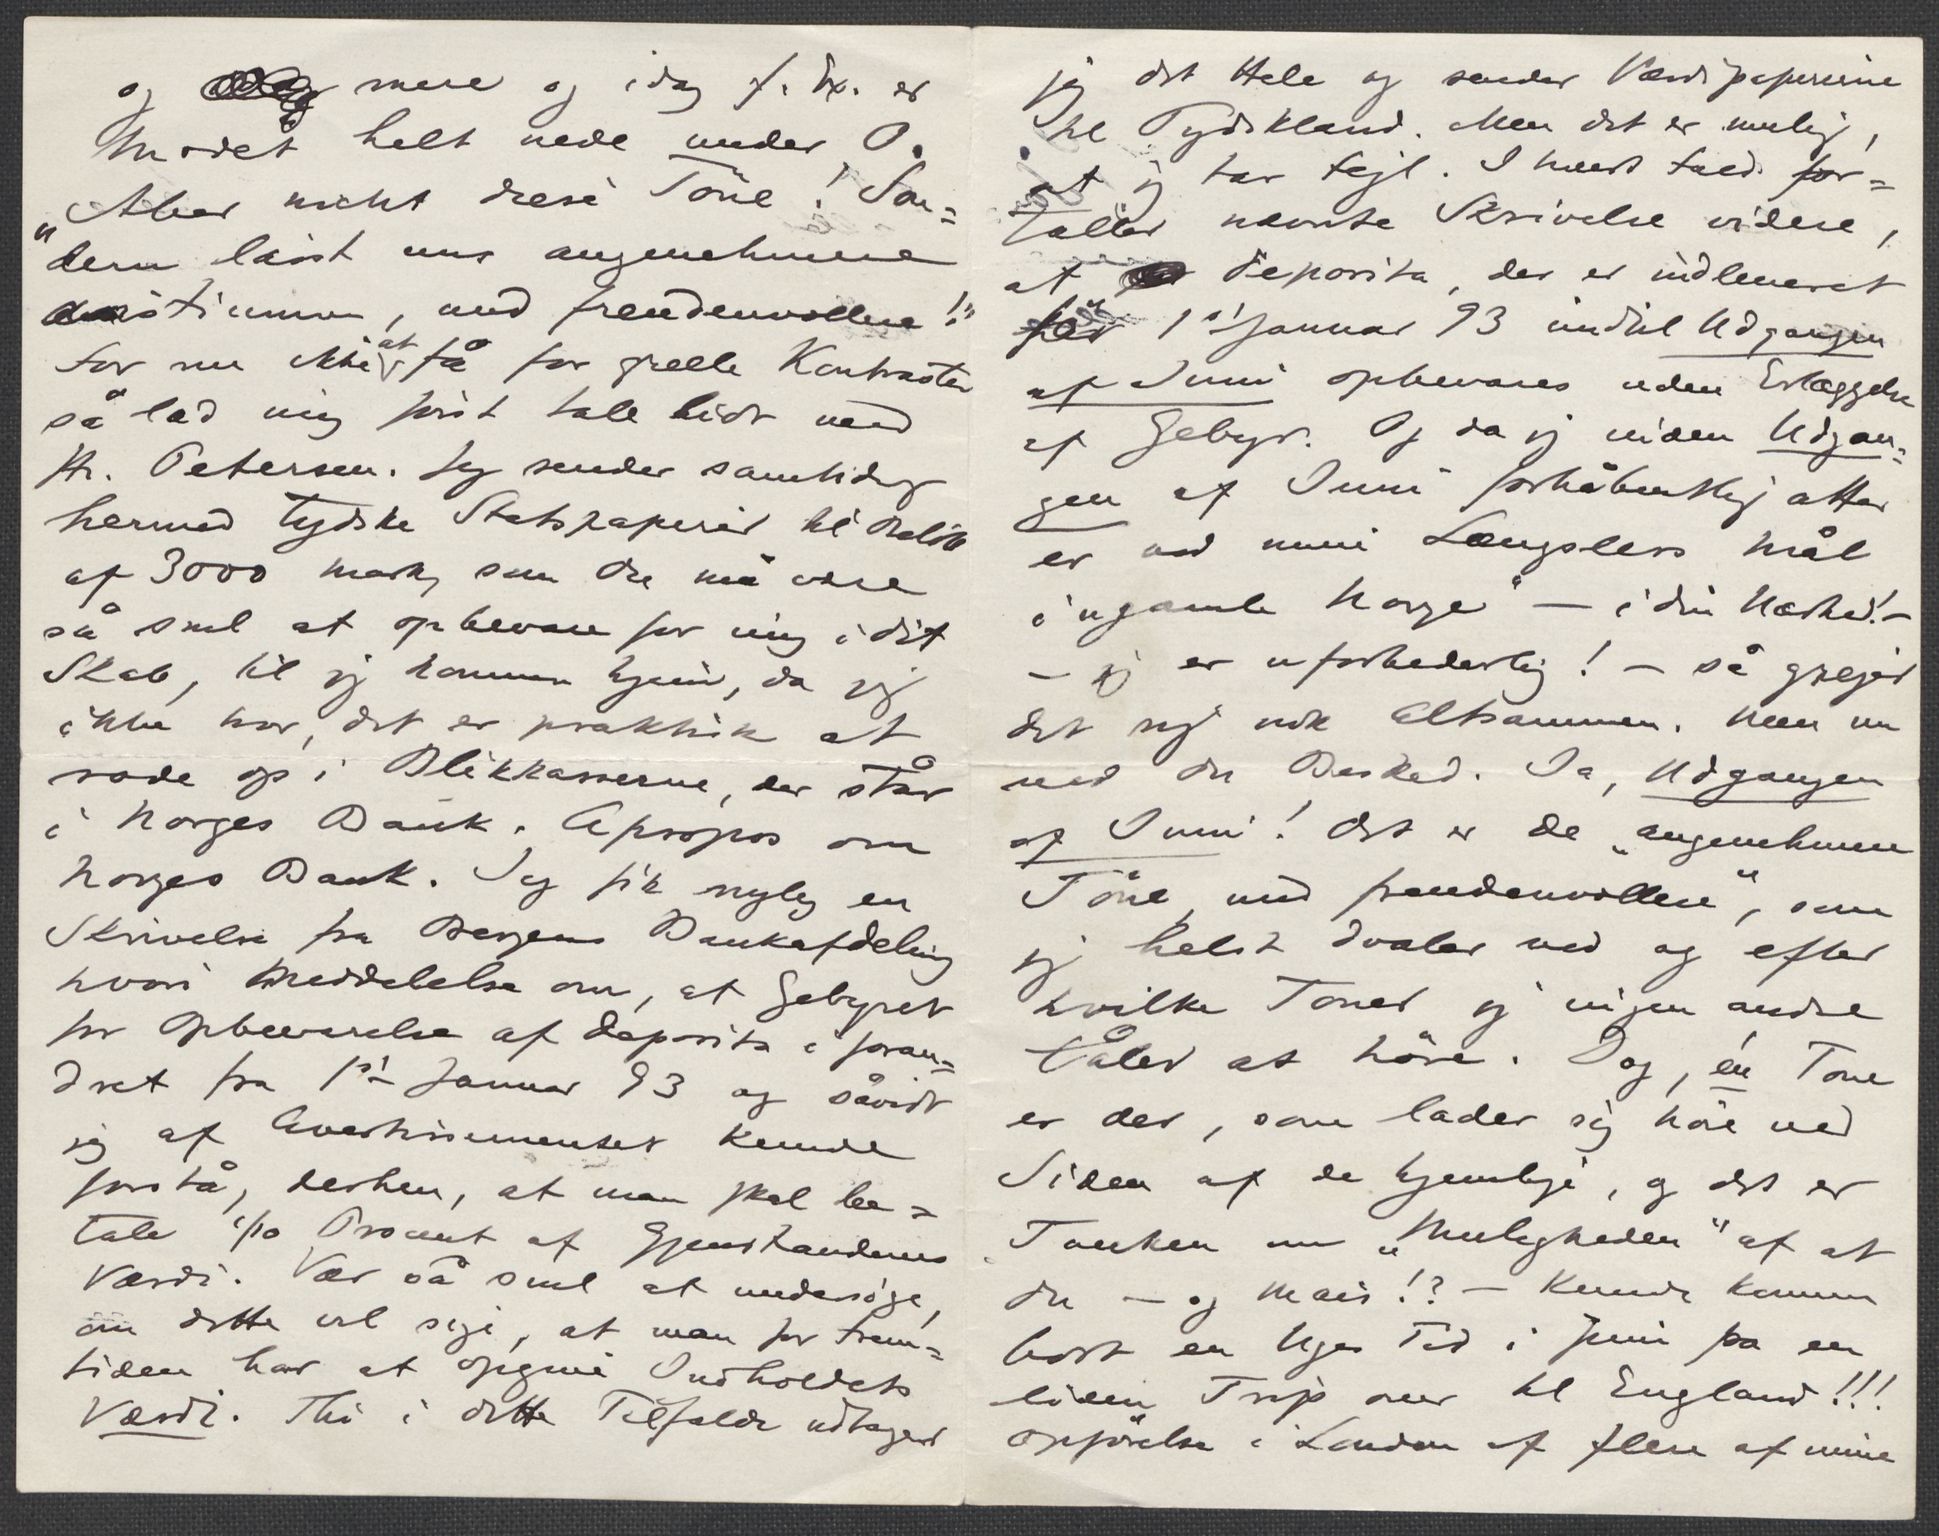 og mere og idag f. Ex. er
Modet helt nede under 0.
"Aber nicht diese Töne! Son=
dern lasst uns angenehmere
anstimmen, und freudenvollere!"
For nu ikke at få for grelle Kontraster
så lad mig först tale lidt med
Hr. Petersen. Jeg sender samtidig
hermed tydske Statspapirer til Beløb
af 3000 mark, som Du må være
så snil at opbevare for mig i dit
Skab, til jeg kommer hjem, da jeg
ikke tror, det er praktisk at
rode op i Blikkasserne, der står
i Norges Bank. Apropos om
Norges Bank. Jeg fik nylig en
Skrivelse fra Bergens Bankafdeling
hvori Meddelelse om, at Gebyret
for Opbevarelse af Deposita er foran=
dret fra 1st Januar 93 og såvidt
jeg af Avertissementet kunde
forstå, derhen, at man skal be=
tale 1/10 Procent af Gjenstandens
Værdi. Vær så snil at undersöge,
om dette vil sige, at man for Frem=
tiden har at opgive Indholdets
Værdi. Thi i dette Tilfælde udtager
jeg det Hele og sender Værdipapirerne
til Tydskland. Men det er mulig,
at jeg tar fejl. I hvert Fald for=
tæller nævnte Skrivelse videre,
at Deposita, der er indleveret
før 1st Januar 93 indtil Udgangen
af Juni opbevares uden Erlæggelse
af Gebyr. Og da jeg inden Udgan=
gen af Juni forhåbentlig atter
er ved mine Længslers Mål
i "gamle Norge" – i din Nærhed! –
– jeg er uforbederlig! – så grejer
det sig nok altsammen. Men nu
ved Du Besked. Ja, Udgangen
af Juni! Det er de "angenehmere
Töne und freudenvollere", som
jeg helst dvæler ved og efter
hvilke Toner jeg ingen andre
tåler at höre. Dog, én Tone
er der, som lader sig höre ved
Siden af de hjemlige, og det er
Tanken om "Muligheden" af at
du – og Marie!? – kunde komme
bort en Uges Tid i Juni på en
liden Trip over til England!!!
Opförelse i London af flere af mine